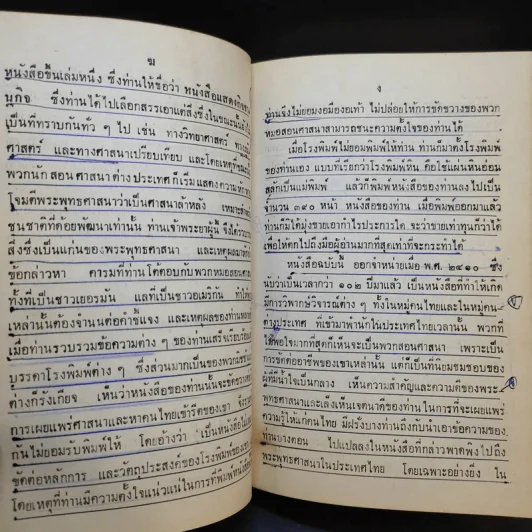 ฆ
หนังสือขึ้นเล่มหนึ่ง ซึ่งท่านให้ชื่อว่า หนังสือแสดงกิจจา
นุกิจ ซึ่งท่านได้ไปเลือกสรรเอาแต่สิ่งซึ่งในขณะนั้น
เป็นที่ทราบกันทั่ว ๆ ไป เช่น ทางวิทยาศาสตร์
ศาสตร์ และทางศาสนาเปรียบเทียบ และโดยเหตุที่ขณะนั้น
พวกนักสอนศาสนาต่างประเทศก็เริ่มแสดงความ
โจมตีพระพุทธศาสนาว่าเป็นศาสนาล้าหลัง เหมาะสำหรับ
ชนชาติที่ด้อยพัฒนาเท่านั้น ท่านเจ้าพระยาผู้นี้
สิ่งซึ่งเป็นแก่นของพระพุทธศาสนา และเหตุผลมา
ข้อกล่าวหา คารมที่ท่านโต้ตอบกับพวกหมอสอนศาสนา
ทั้งที่เป็นชาวเยอรมัน แลที่เป็นชาวอเมริกัน ทำให้
เหล่านั้นต้องจำนนต่อคำชี้แจง และเหตุผลของท่าน
เมื่อท่านรวบรวมข้อความต่าง ๆ ของท่านเสร็จเรียบร้อย
บรรดาโรงพิมพ์ต่าง ๆ ซึ่งส่วนมากเป็นของพวก
ต่างก็รังเกียจ เห็นว่าหนังสือของท่านนั้นจะขัดขวาง
การเผยแพร่ศาสนาและหาคนไทยเข้ารีตของเขา จึง
กันไม่ยอมรับพิมพ์ให้ โดยอ้างว่า เป็นหนังสือ
ขัดต่อหลักการ และวัตถุประสงค์ของโรงพิมพ์ของเขา
โดยเหตุที่ท่านมีความตั้งใจแน่วแน่ในการที่จะพิมพ์หนังสือ
ง
ท่านจึงไม่ยอมงอมืองอเท้า ไม่ปล่อยให้การขัดขวางของพวก
หมอสอนศาสนาสามารถชนะความตั้งใจของท่านได้
เมื่อโรงพิมพ์ไม่ยอมพิมพ์ให้ท่าน ท่านก็มาตั้งโรงพิมพ์
ของท่านเอง แบบที่เรียกว่าโรงพิมพ์หิน คือใช้แผ่นหินอ่อน
สลักเป็นแม่พิมพ์ แล้วก็พิมพ์หนังสือของท่านลงไปเป็น
จำนวน ๓๙๐ หน้า หนังสือของท่าน เมื่อพิมพ์ออกมาแล้ว
ท่านก็มิได้มุ่งขายเอากำไรประการใด จะว่าขายเท่าทุนก็ว่าได้
เพื่อให้ตกไปถึงมือผู้อ่านมากที่สุดเท่าที่จะกระทำได้
หนังสือฉบับนี้ ออกจำหน่ายเมื่อ พ.ศ. ๒๔๑๐ ซึ่ง
นับว่าเป็นเวลากว่า ๑๐๒ ปีมาแล้ว เป็นหนังสือที่ทำให้เกิด
มีการวิพากษ์วิจารณ์ต่าง ๆ ทั้งในหมู่คนไทยและในหมู่คน
ต่างประเทศ ที่เข้ามาพำนักในประเทศไทยเวลานั้น พวกที่
ไม่พอใจมากที่สุดก็เห็นจะเป็นพวกสอนศาสนา เพราะเป็น
การขัดต่ออาชีพของเขาเหล่านั้น แต่ก็เป็นที่นิยมชมชอบของ
ผู้ที่มีน้ำใจเป็นกลาง เห็นความสำคัญและความดีของพระ
พุทธศาสนาและเล็งเห็นเจตนาดีของท่านในการที่จะเผยแพร่
ความรู้ให้แก่คนไทย มีฝรั่งบางท่านถึงกับนำเอาข้อความของ
ท่านบางตอน ไปแปลลงในหนังสือที่กล่าวพาดพิงไปถึง
พระพุทธศาสนาในประเทศไทย โดยเฉพาะอย่างยิ่ง ใน